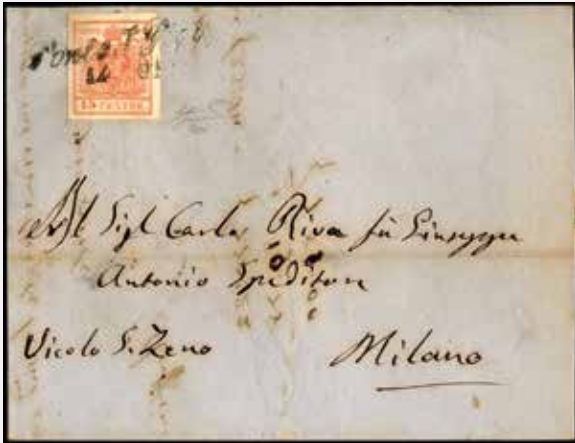 15 CENTES
Sigl Carlo Riva fù Giuseppe
Antonio Speditore
Vicolo S. Zeno
Milano